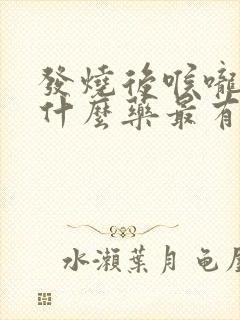 發燒後喉嚨
什麼藥最有
水瀨葉月 龟